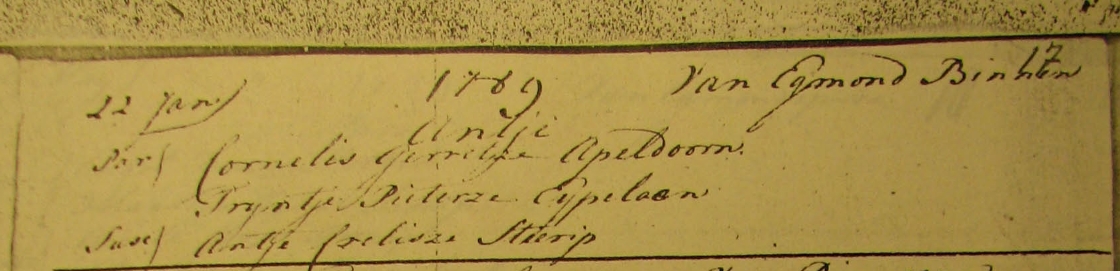 17
1789 Van Egmond Binnen
22 Jan
Antje
Par Cornelis Gerretze Apeldoorn.
Tryntje Pieterze Eypelaan
Susc Antje Crelisze Stierip